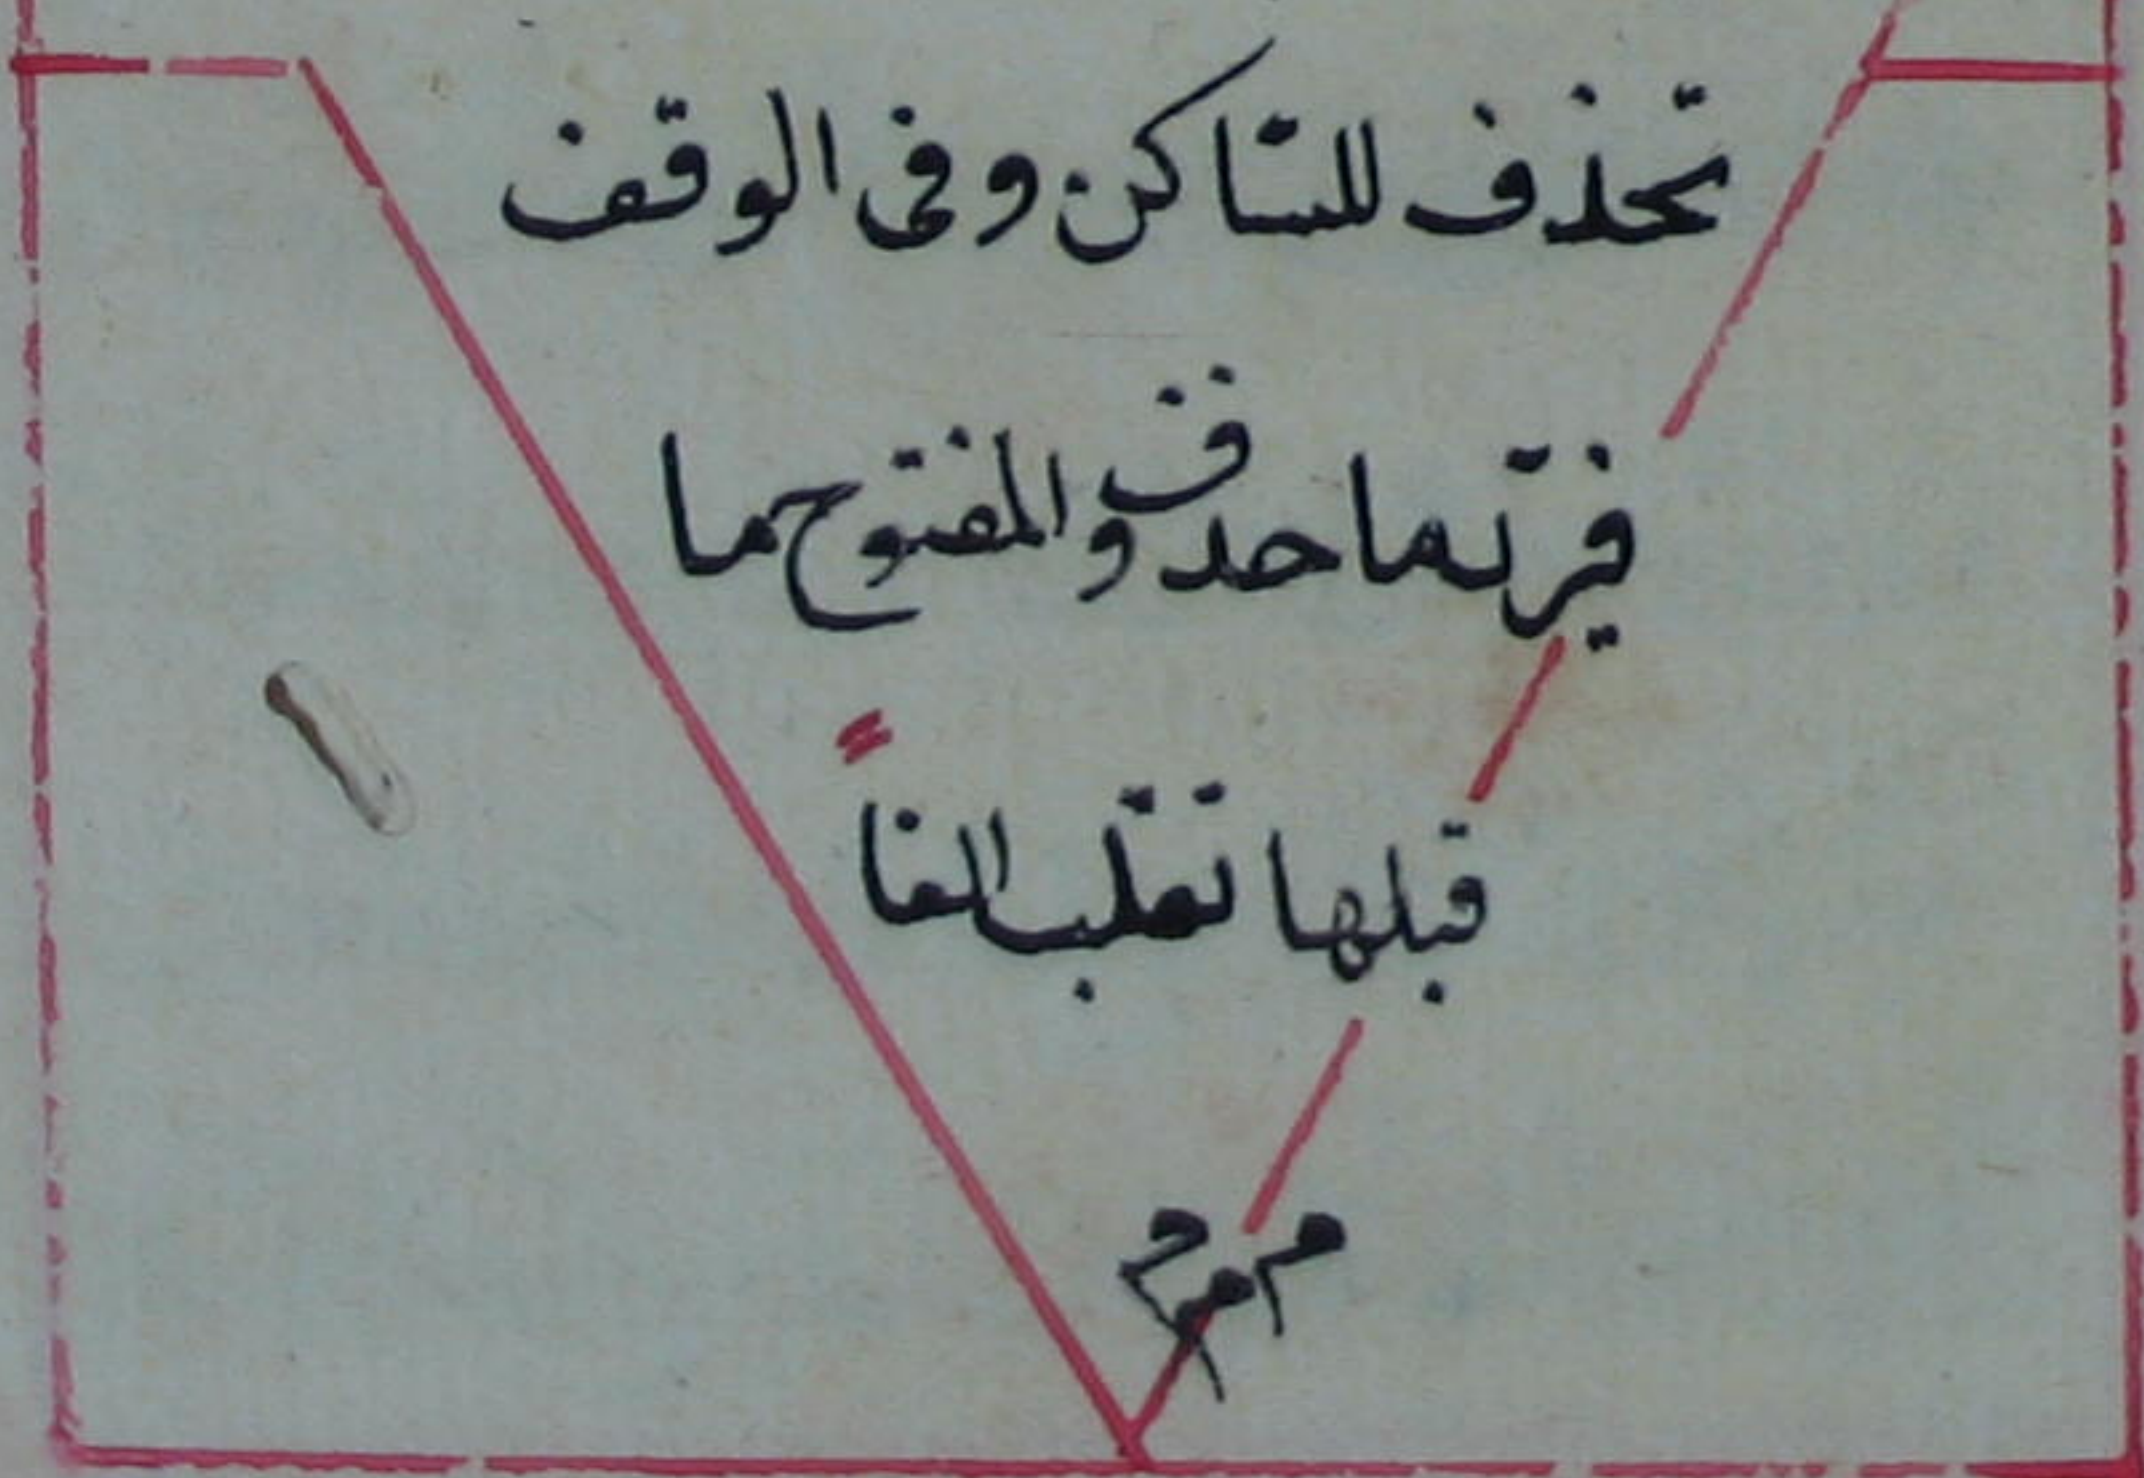 تحذف للسّاكن وفى الوقف
فيردّ ما حذف والمفتوح ما
قبلها تقلب الفاً
م م م